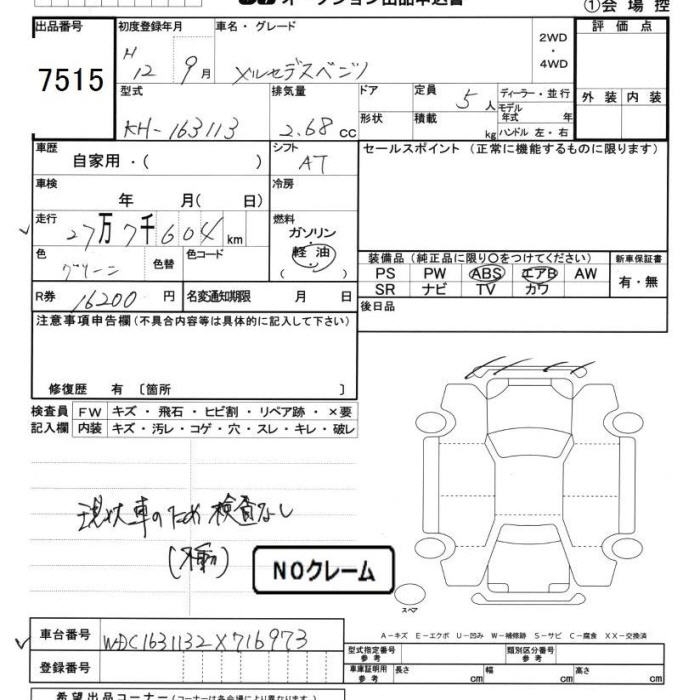 オークション出品申込書
①会場控
出品番号 初度登録年月 車名・グレード 評価点
7515 H 12 9月 メルセデスベンツ 2WD・4WD
型式 排気量 ドア 定員 5人 ディーラー・並行 外装 内装
KH-163113 2.68cc 形状 積載 kg モデル年式 年 ハンドル 左・右
車歴 シフト セールスポイント（正常に機能するものに限ります）
自家用・（ ） AT
車検 冷房
年 月（ 日）
走行 燃料
27万7千604km ガソリン・軽油
色 グリーン 色替 色コード （ ）
装備品（純正品に限り〇をつけてください） 新車保証書
PS PW ABS エアB AW 有・無
SR ナビ TV カワ
R券 16200円 名変通知期限 月 日 後日品
注意事項申告欄（不具合内容等は具体的に記入して下さい）
修復歴 有〔箇所 〕
検査員 FW キズ・飛石・ヒビ割・リペア跡・×要
記入欄 内装 キズ・汚レ・コゲ・穴・スレ・キレ・破レ
現状車のため検査なし
（不動）
NOクレーム
スペア
A－キズ E－エクボ U－凹み W－補修跡 S－サビ C－腐食 XX－交換済
車台番号 WDC1631132X716973
登録番号
型式指定番号 参考 類別区分番号 参考
車庫証明用 参考 長さ cm 幅 cm 高さ cm
希望出品コーナー（コーナーは各会場により異なります。）